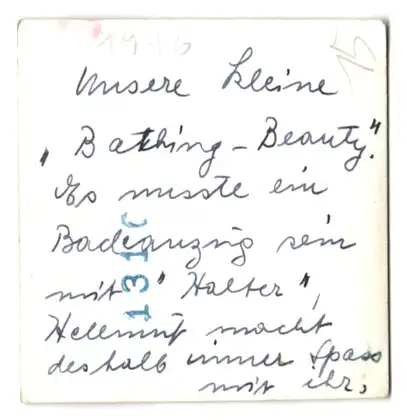 Unsere kleine
„Bathing-Beauty."
Es musste ein
Badeanzug sein
mit "Halter",
Hellmuf macht
deshalb immer Spass
mit ihr,
1310
15